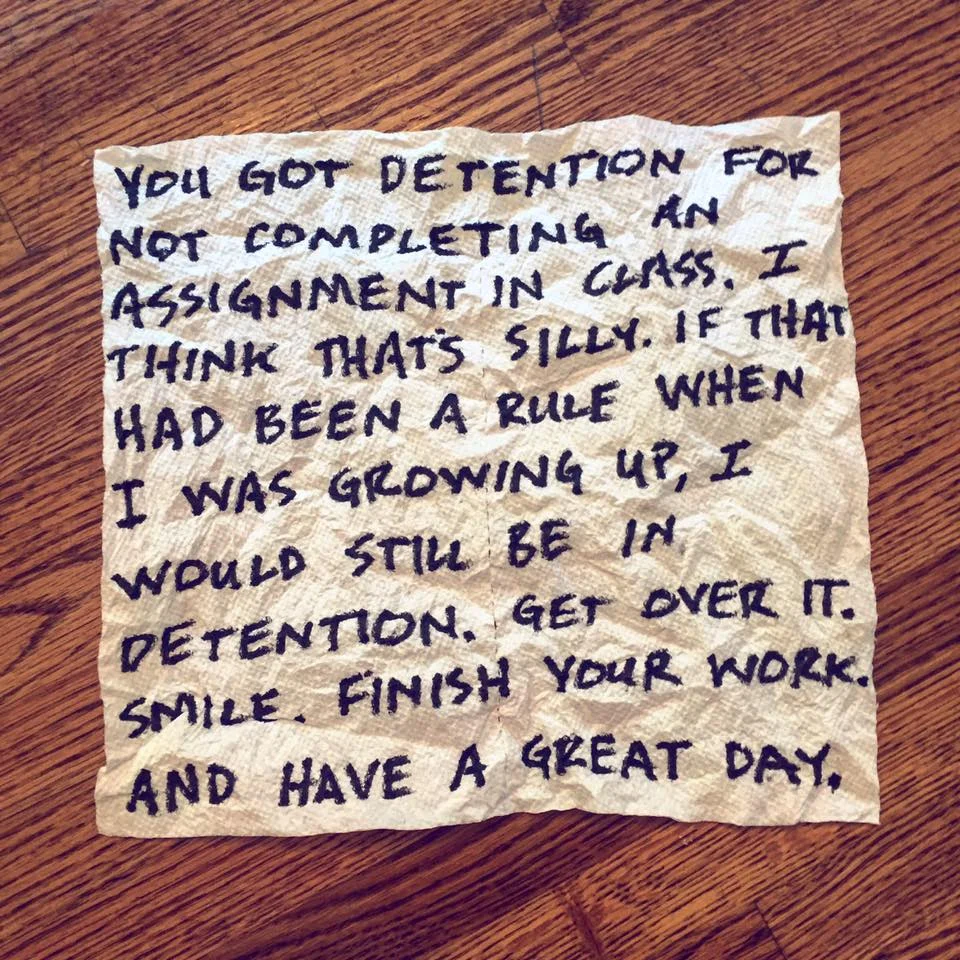 YOU GOT DETENTION FOR
NOT COMPLETING AN
ASSIGNMENT IN CLASS. I
THINK THAT'S SILLY. IF THAT
HAD BEEN A RULE WHEN
I WAS GROWING UP, I
WOULD STILL BE IN
DETENTION. GET OVER IT.
SMILE. FINISH YOUR WORK.
AND HAVE A GREAT DAY.